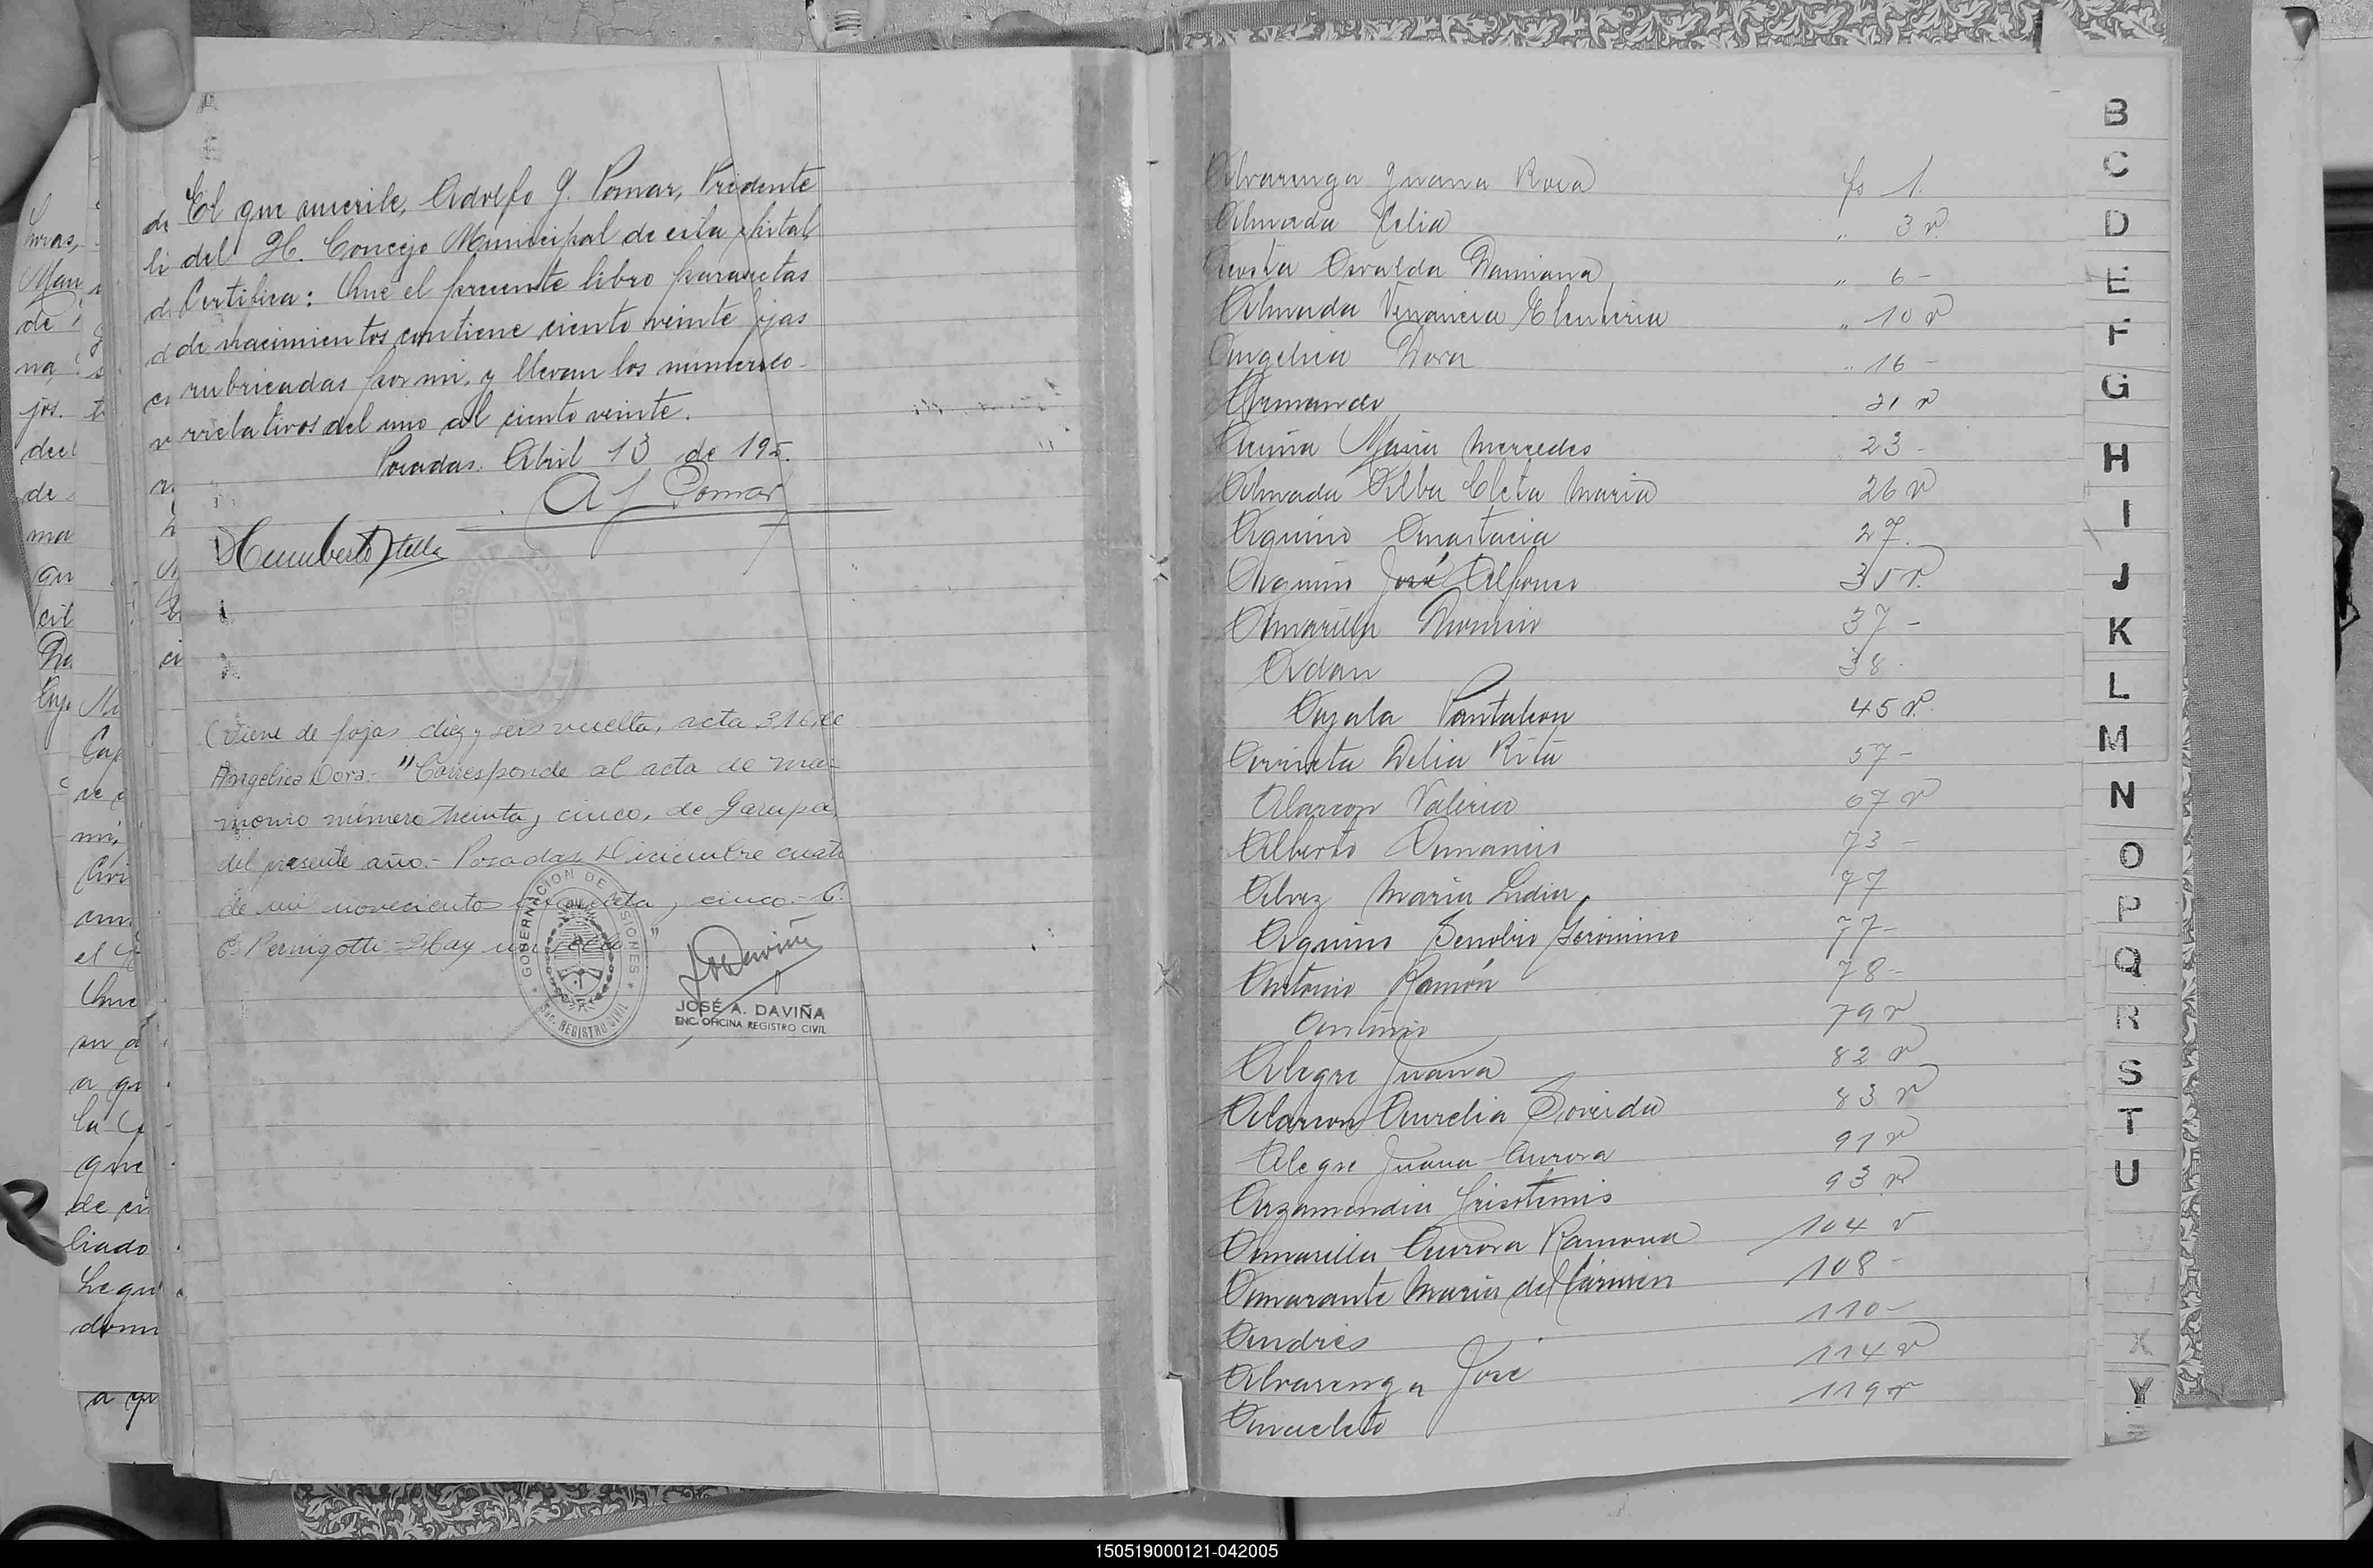 El que suscribe, Adolfo J. Pomar, Pridente
del H. Concejo Municipal de esta pital
Certifica: Que el presente libro para actas
de nacimientos contiene ciento veinte fjas
rubricadas por mi, y llevan los numeros co-
rrelativos del uno al ciento veinte.
Posadas. Abril 13 de 19
A J Pomar
Humberto Stella
(Viene de fojas diez y seis vuelta, acta 316, de
Angelica Dora.- "Corresponde al acta de ma-
monio número treinta y cinco, de Garupá,
del presente año.- Posadas Diciembre cuat
de mil novecientos cincuenta y cinco.- C.
C. Pernigotti - Hay un sello "
GOBERNACION DE MISIONES
Sec. REGISTRO CIVIL
JOSÉ A. DAVIÑA
ENC. OFICINA REGISTRO CIVIL
Alvarenga Juana Rosa fs 1.
Almada Celia " 3 v.
Acosta Osvalda Damiana " 6 -
Almada Venancia Eleuteria " 10 v
Angelica Dora " 16 -
Armando 21 v
Acuña María Mercedes 23 -
Almada Alba Cleta María 26 v
Aquino Anastacia 27.
Aquino José Alfonso 35 v.
Amarilla 37 -
Adan 38 -
Ayala Pantaleon 45 v.
Arrieta Delia Rita 57 -
Alarcon Valerio 67 v
Alberto Amancio 73 -
Alvez Maria Lidia 77
Aquino Senobio Gerónimo 77 -
Antonio Ramón 78 -
Antonio 79 v
Alegre Juana 82 v
Alarcon Aurelia 83 v
Alegre Juana Aurora 91 v
Arzamendia 93 v
Amarilla Aurora Ramona 104 v
Amarante María del Cármen 108 -
Andrés 110 -
Alvarenga José 114 v
Anacleto 119 v
B
C
D
E
F
G
H
I
J
K
L
M
N
O
P
Q
R
S
T
U
V
X
Y
150519000121-042005